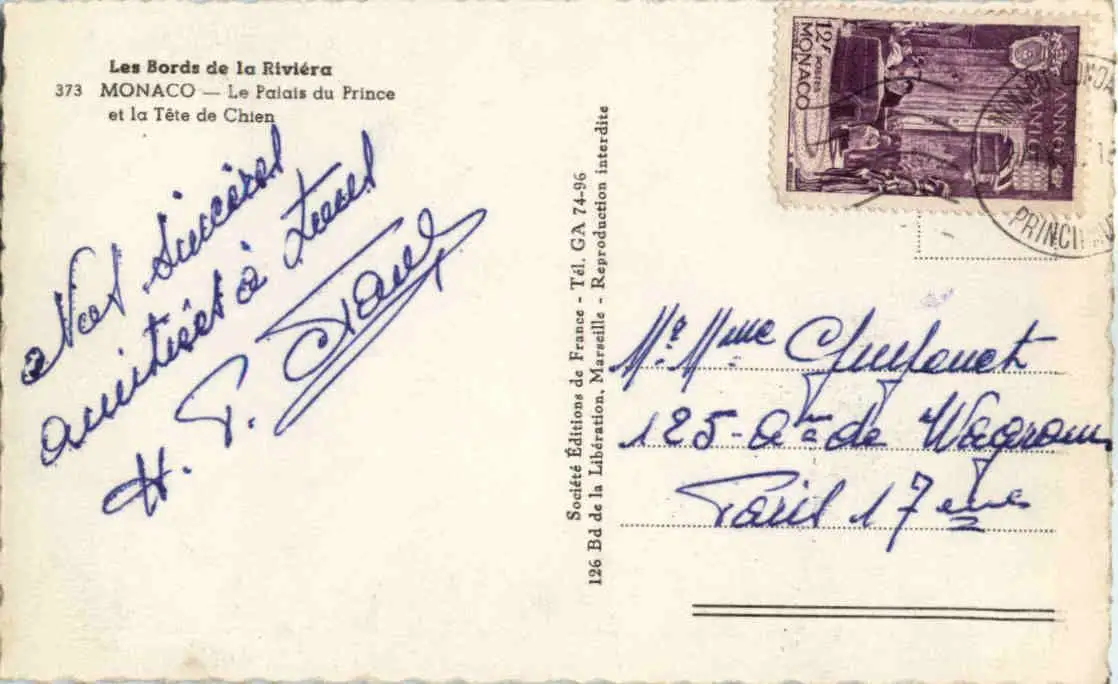 Les Bords de la Riviéra
373 MONACO — Le Palais du Prince
et la Tête de Chien
Nos sincères
amitiés à tous
H. P.
Société Éditions de France - Tél. GA 74-96
126 Bd de la Libération, Marseille - Reproduction interdite
12F POSTES
MONACO
ANNO
SANTO
PRINCI
Mr Mme
125 - Ave de Wagram
Paris 17eme